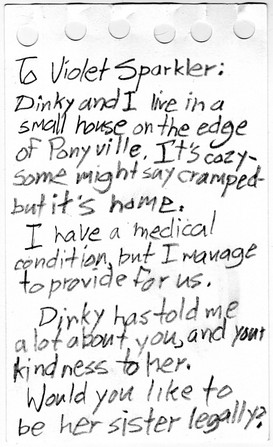 To Violet Sparkler:
Dinky and I live in a
small house on the edge
of Ponyville. It's cozy-
some might say cramped-
but it's home.
I have a medical
condition, but I manage
to provide for us.
Dinky has told me
a lot about you, and your
kindness to her.
Would you like to
be her sister legally?